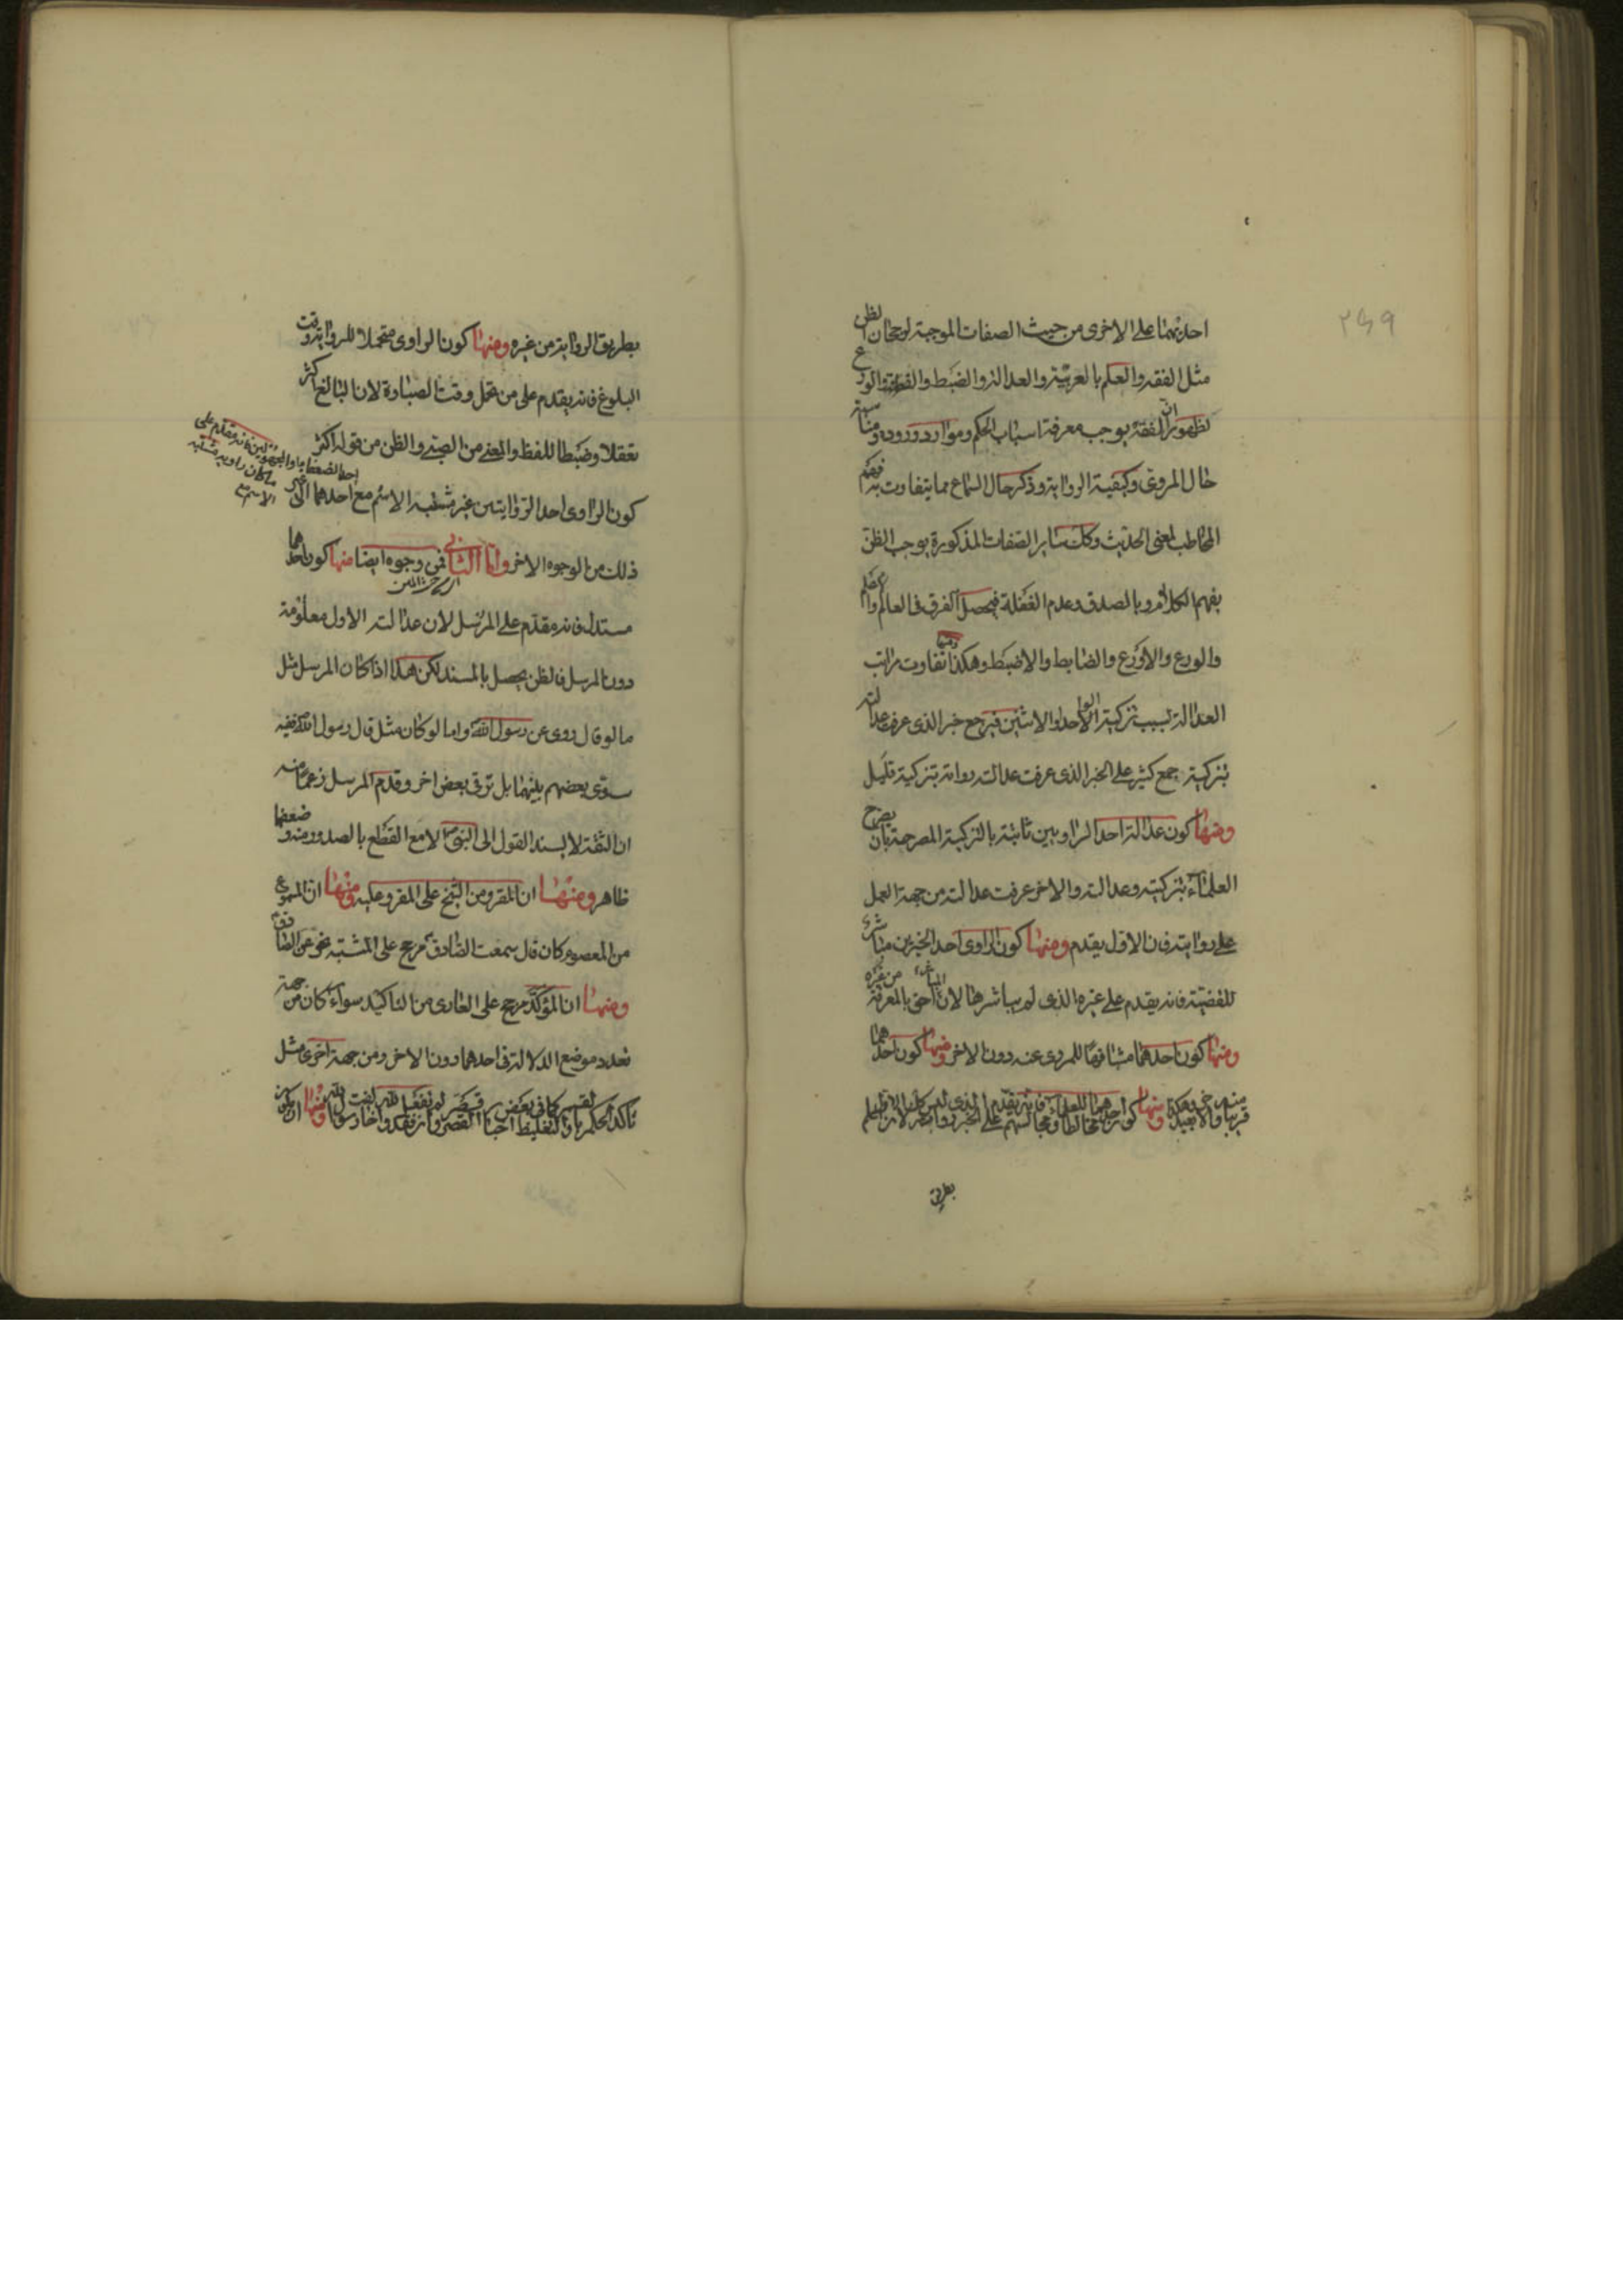 ٢٤٩
احديهما على الاخرى من حيث الصفات الموجبة لرجحان الظن
مثل الفقه والعلم بالعربية والعدالة والضبط والفطنة والورع
لظهور ان الفقه يوجب معرفة اسباب الحكم وموارد وروده ومناسبة
حال المروى وكيفية الرواية وذكر حال السماع مما يتفاوت به فهم
المخاطب لمعنى الحديث وكك ساير الصفات المذكورة يوجب الظن
بفهم الكلام وبالصدق وعدم الغفلة فيحصل الفرق فى العالم والاعلم
والورع والاورع والضابط والاضبط وهكذا ومنها تفاوت مراتب
العدالة بسبب تزكية الواحد او الاثنين فيرجح خبر الذى عرف عدالته
بتزكية جمع كثير على الخبر الذى عرفت عدالة رواته بتزكية قليل
ومنها كون عدالة احد الراويين ثابتة بالتزكية المصرحة بان يصرح
العلماء بتزكيته وعدالته والاخر عرفت عدالته من جهة العمل
على روايته فان الاول يقدم ومنها كون الراوى احد الخبرين مباشر
للقضية فانه يقدم على غيره الذى لم يباشرها لان المباشر احق بالمعرفة من غيره
ومنها كون احدهما مشافها للمروى عنه دون الاخر ومنها كون احدهما
قريبا منه والاخر بعيدا ومنها كون احدهما مخالطا للعلماء ومجالسهم فانه يقدم على الخبر الذى ليس كذلك
بطريق
بطريق الرواية من غيره ومنها كون الراوى متحملا للرواية وقت
البلوغ فانه يقدم على من تحمل وقت الصباوة لان البالغ اكثر
تعقلا وضبطا للفظ والمعنى من الصبى والظن من قوله اكثر
كون الراوى احد الروايتين غير مشتبه الاسم مع احدهما الى غير
ذلك من الوجوه الاخر واما الثانى فمن وجوه ايضا منها كون احدهما
مسندا فانه مقدم على المرسل لان عدالة الاول معلومة
دون المرسل فالظن يحصل بالمسند لكن هذا اذا كان المرسل مثل
ما لو قال روى عن رسول الله واما لو كان مثل قال رسول الله ففيه
سوى بعضهم بينهما بل ترقى بعض اخر وقدم المرسل زعما منه
ان الثقة لا يسند القول الى النبى الا مع القطع بالصدور منه وضعفها
ظاهر ومنها ان المقرو من الشيخ على المقرو عليه ومنها ان المسموع
من المعصوم كان قال سمعت الصادق مرجح على المشتبه نحو عن الصادق
ومنها ان المؤكد مرجح على العارى من التاكيد سواء كان من جهة
تعدد موضع الدلالة فى احدهما دون الاخر ومن جهة اخرى مثل
تاكد الحكم بالقسم كما فى بعض اخبار القصر
احد الضعفاء والمجهولين فانه مقدم على
ما كان راويه مشتبه
الاسم مع